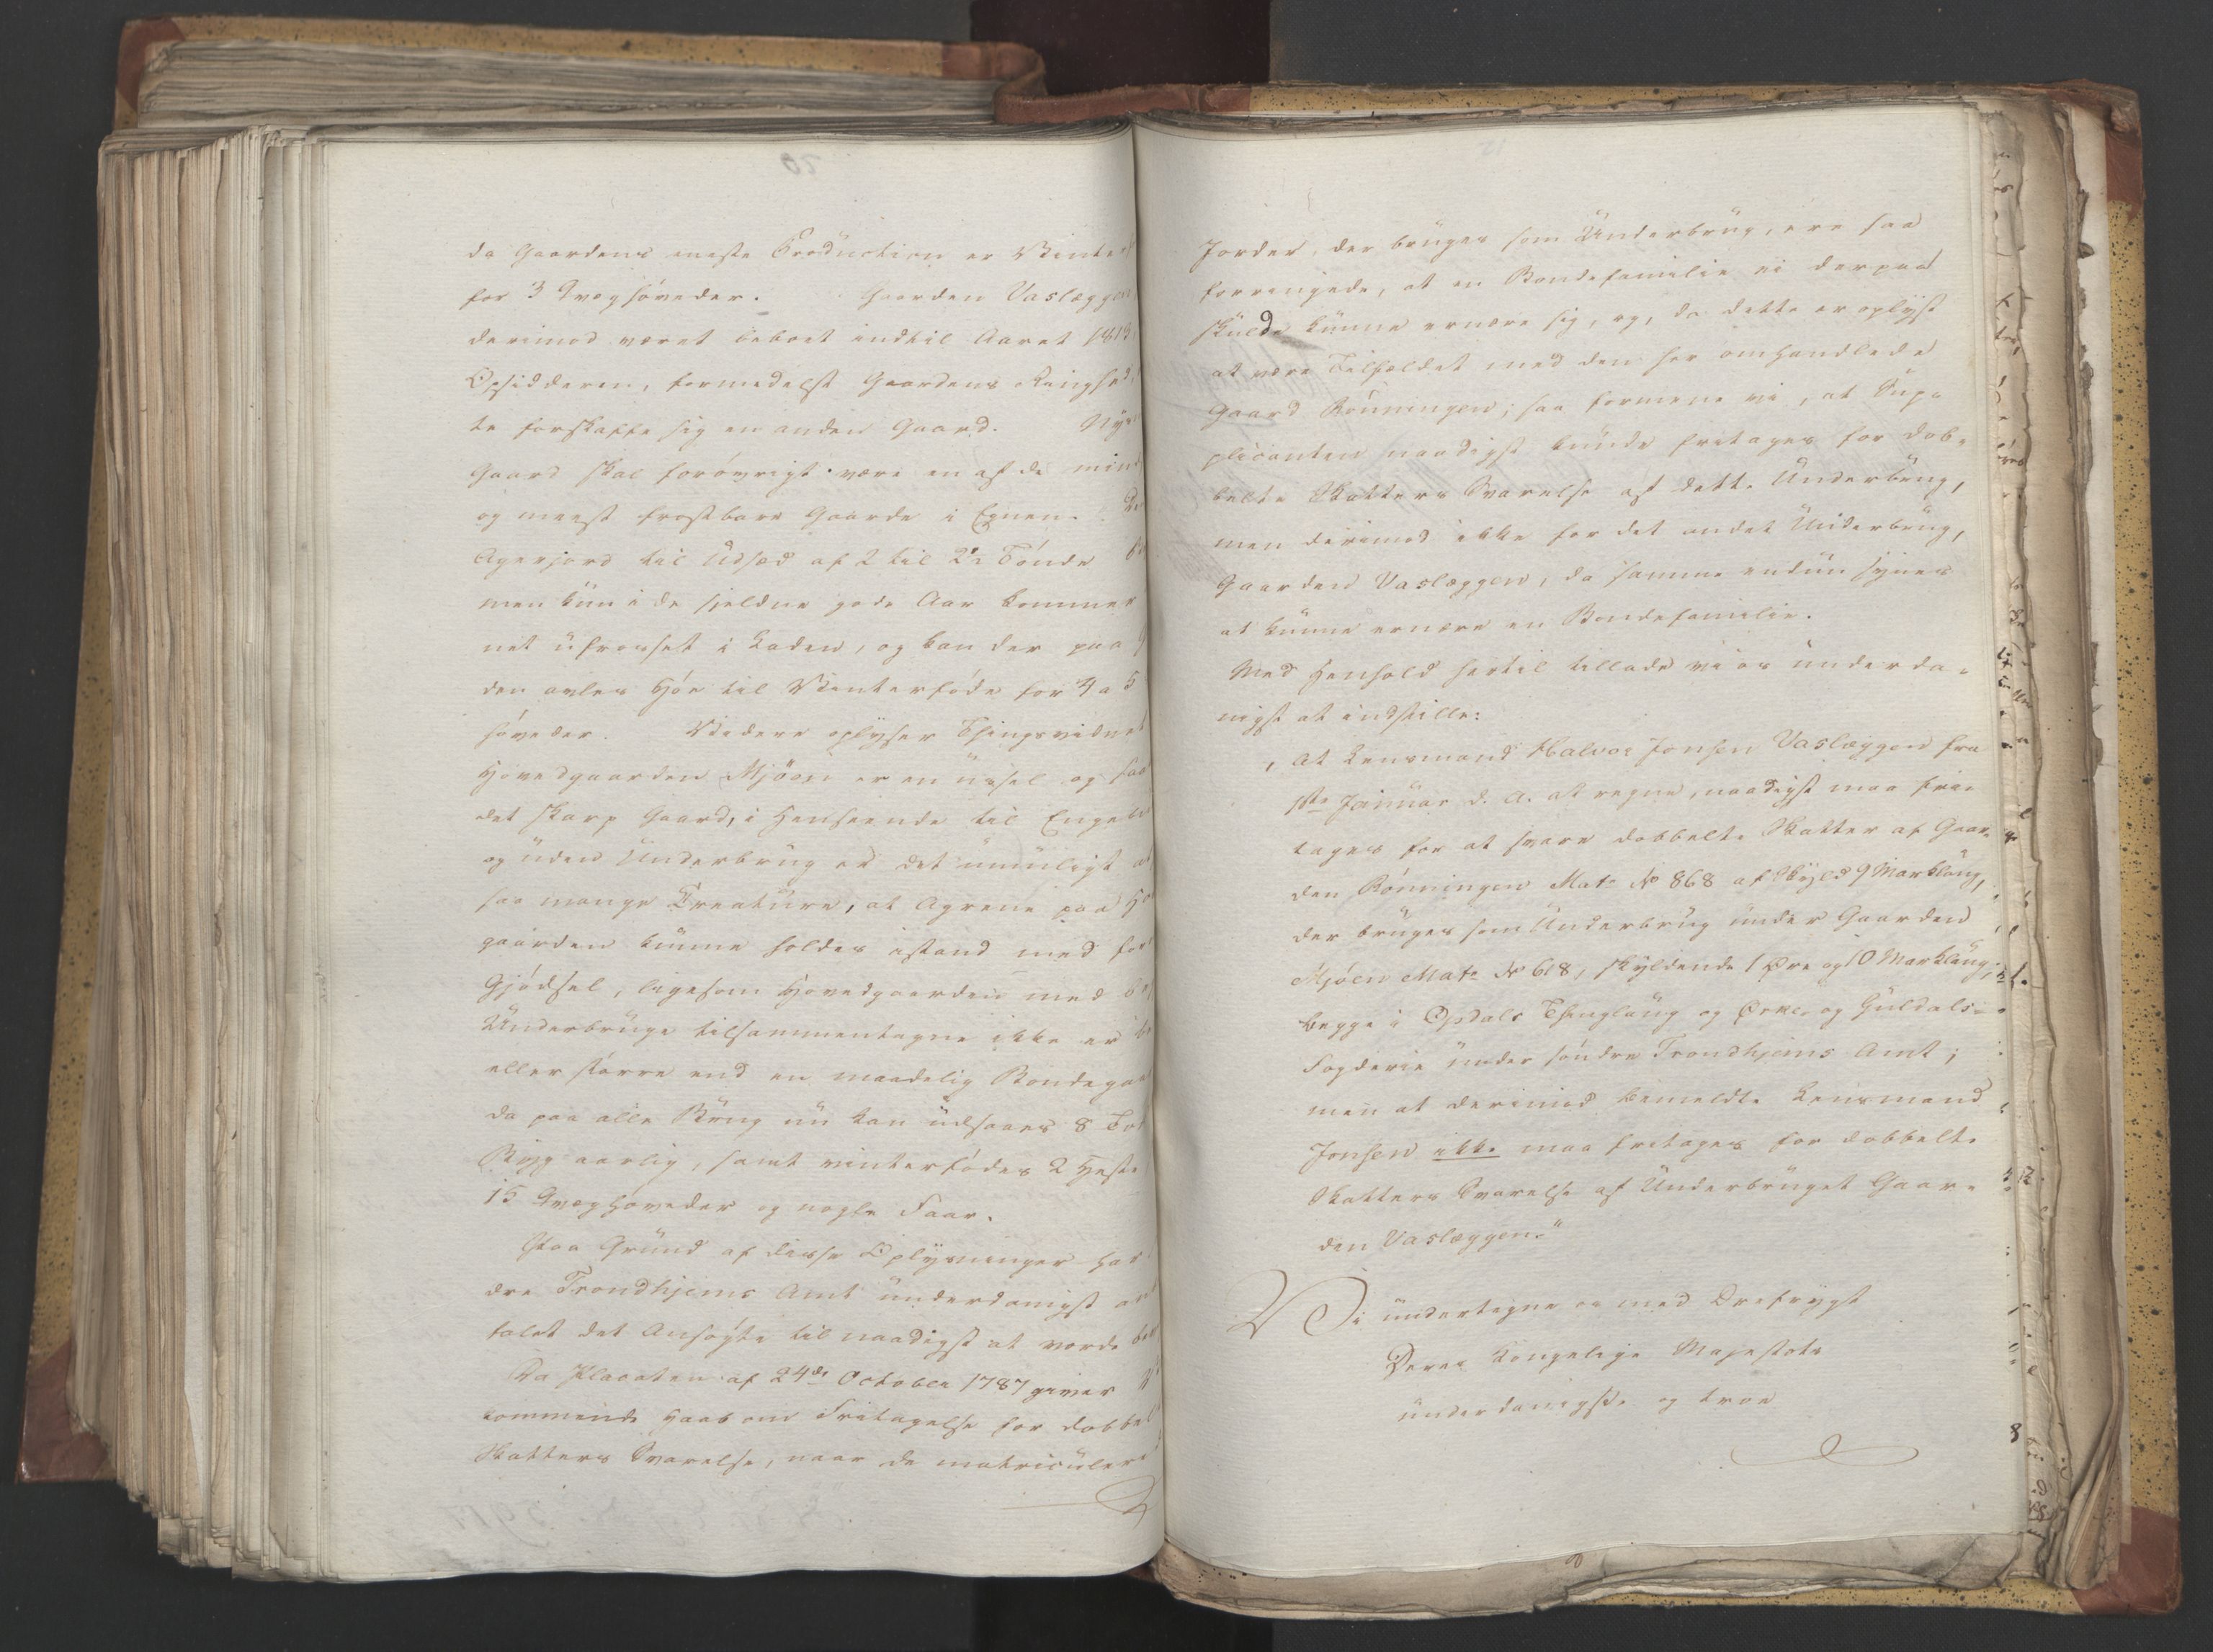 da Gaardens eneste Production er Vinter
for 3 Qvæghöveder. Gaarden Vaslæggen
derimod været beboet indtil Aaret 1813
Opsidderen, formedelst Gaardens Ringhed
te forskaffe sig en anden Gaard. Nys
Gaard skal forövrigt være en af de mind
og meest frostbare Gaarde i Egnen. De
Agerjord til Udsæd af 2 til 2½ Tönde
men kun i de sjeldne gode Aar kommer
net ufrosset i Laden, og kan der paa
den avles Höe til Vinterföde for 4 a 5
höveder. Videre oplyser Thingsvidnet
Hovedgaarden Mjöen er en ussel og saa
det skarp Gaard, i Henseende til Engela
og uden Underbrug er det umuligt at
saa mange Creature, at Agrene paa Ho
gaarden kunne holdes istand med for
Gjödsel, ligesom Hovedgaarden med be
Underbruge tilsammentagne ikke er be
eller större end en maadelig Bondegaa
da paa alle Brug nu kan udsaaes 8 To
Byg aarlig, samt vinterfödes 2 Heste
15 Qvæghöveder og nogle Faar.
Paa Grund af disse Oplysninger har
dre Trondhjems Amt underdanigst an
falet det Ansögte til naadigst at vorde be
Da Placaten af 24de October 1787 giver
kommende Haab om Fritagelse for dobbel
Skatters Svarelse, naar de matriculere
Jorder, der bruges som Underbrug, ere saa
forringede, at en Bondefamilie ei derpaa
skulde kunne ernære sig, og, da dette er oplyst
at være Tilfældet med den her omhandlede
Gaard Rönningen; saa formene vi, at Sup-
plicanten naadigst kunde fritages for dob-
belte Skatters Svarelse af dette Underbrug,
men derimod ikke for det andet Underbrug,
Gaarden Vaslæggen, da samme endnu synes
at kunne ernære en Bondefamilie.
Med Henhold hertil tillade vi os underda-
nigst at indstille:
„At Lensmand Halvor Jonsen Vaslæggen fra
1ste Januar d. A. at regne, naadigst maa fri-
tages for at svare dobbelte Skatter af Gaar-
den Rönningen Mat: No 868 af Skyld 9 Marklaug,
der bruges som Underbrug under Gaarden
Mjöen Mat: No 618, skyldende 1 Öre og 10 Marklaug,
begge i Opdals Thinglaug og Orke- og Guldals-
Fogderie under söndre Trondhjems Amt;
men at derimod bemeldte Lensmand
Jonsen ikke maa fritages for dobbelte
Skatters Svarelse af Underbruget Gaar-
den Vaslæggen."
Vi undertegne os med Ærefrygt
Deres Kongelige Majestæts
underdanigste og troe